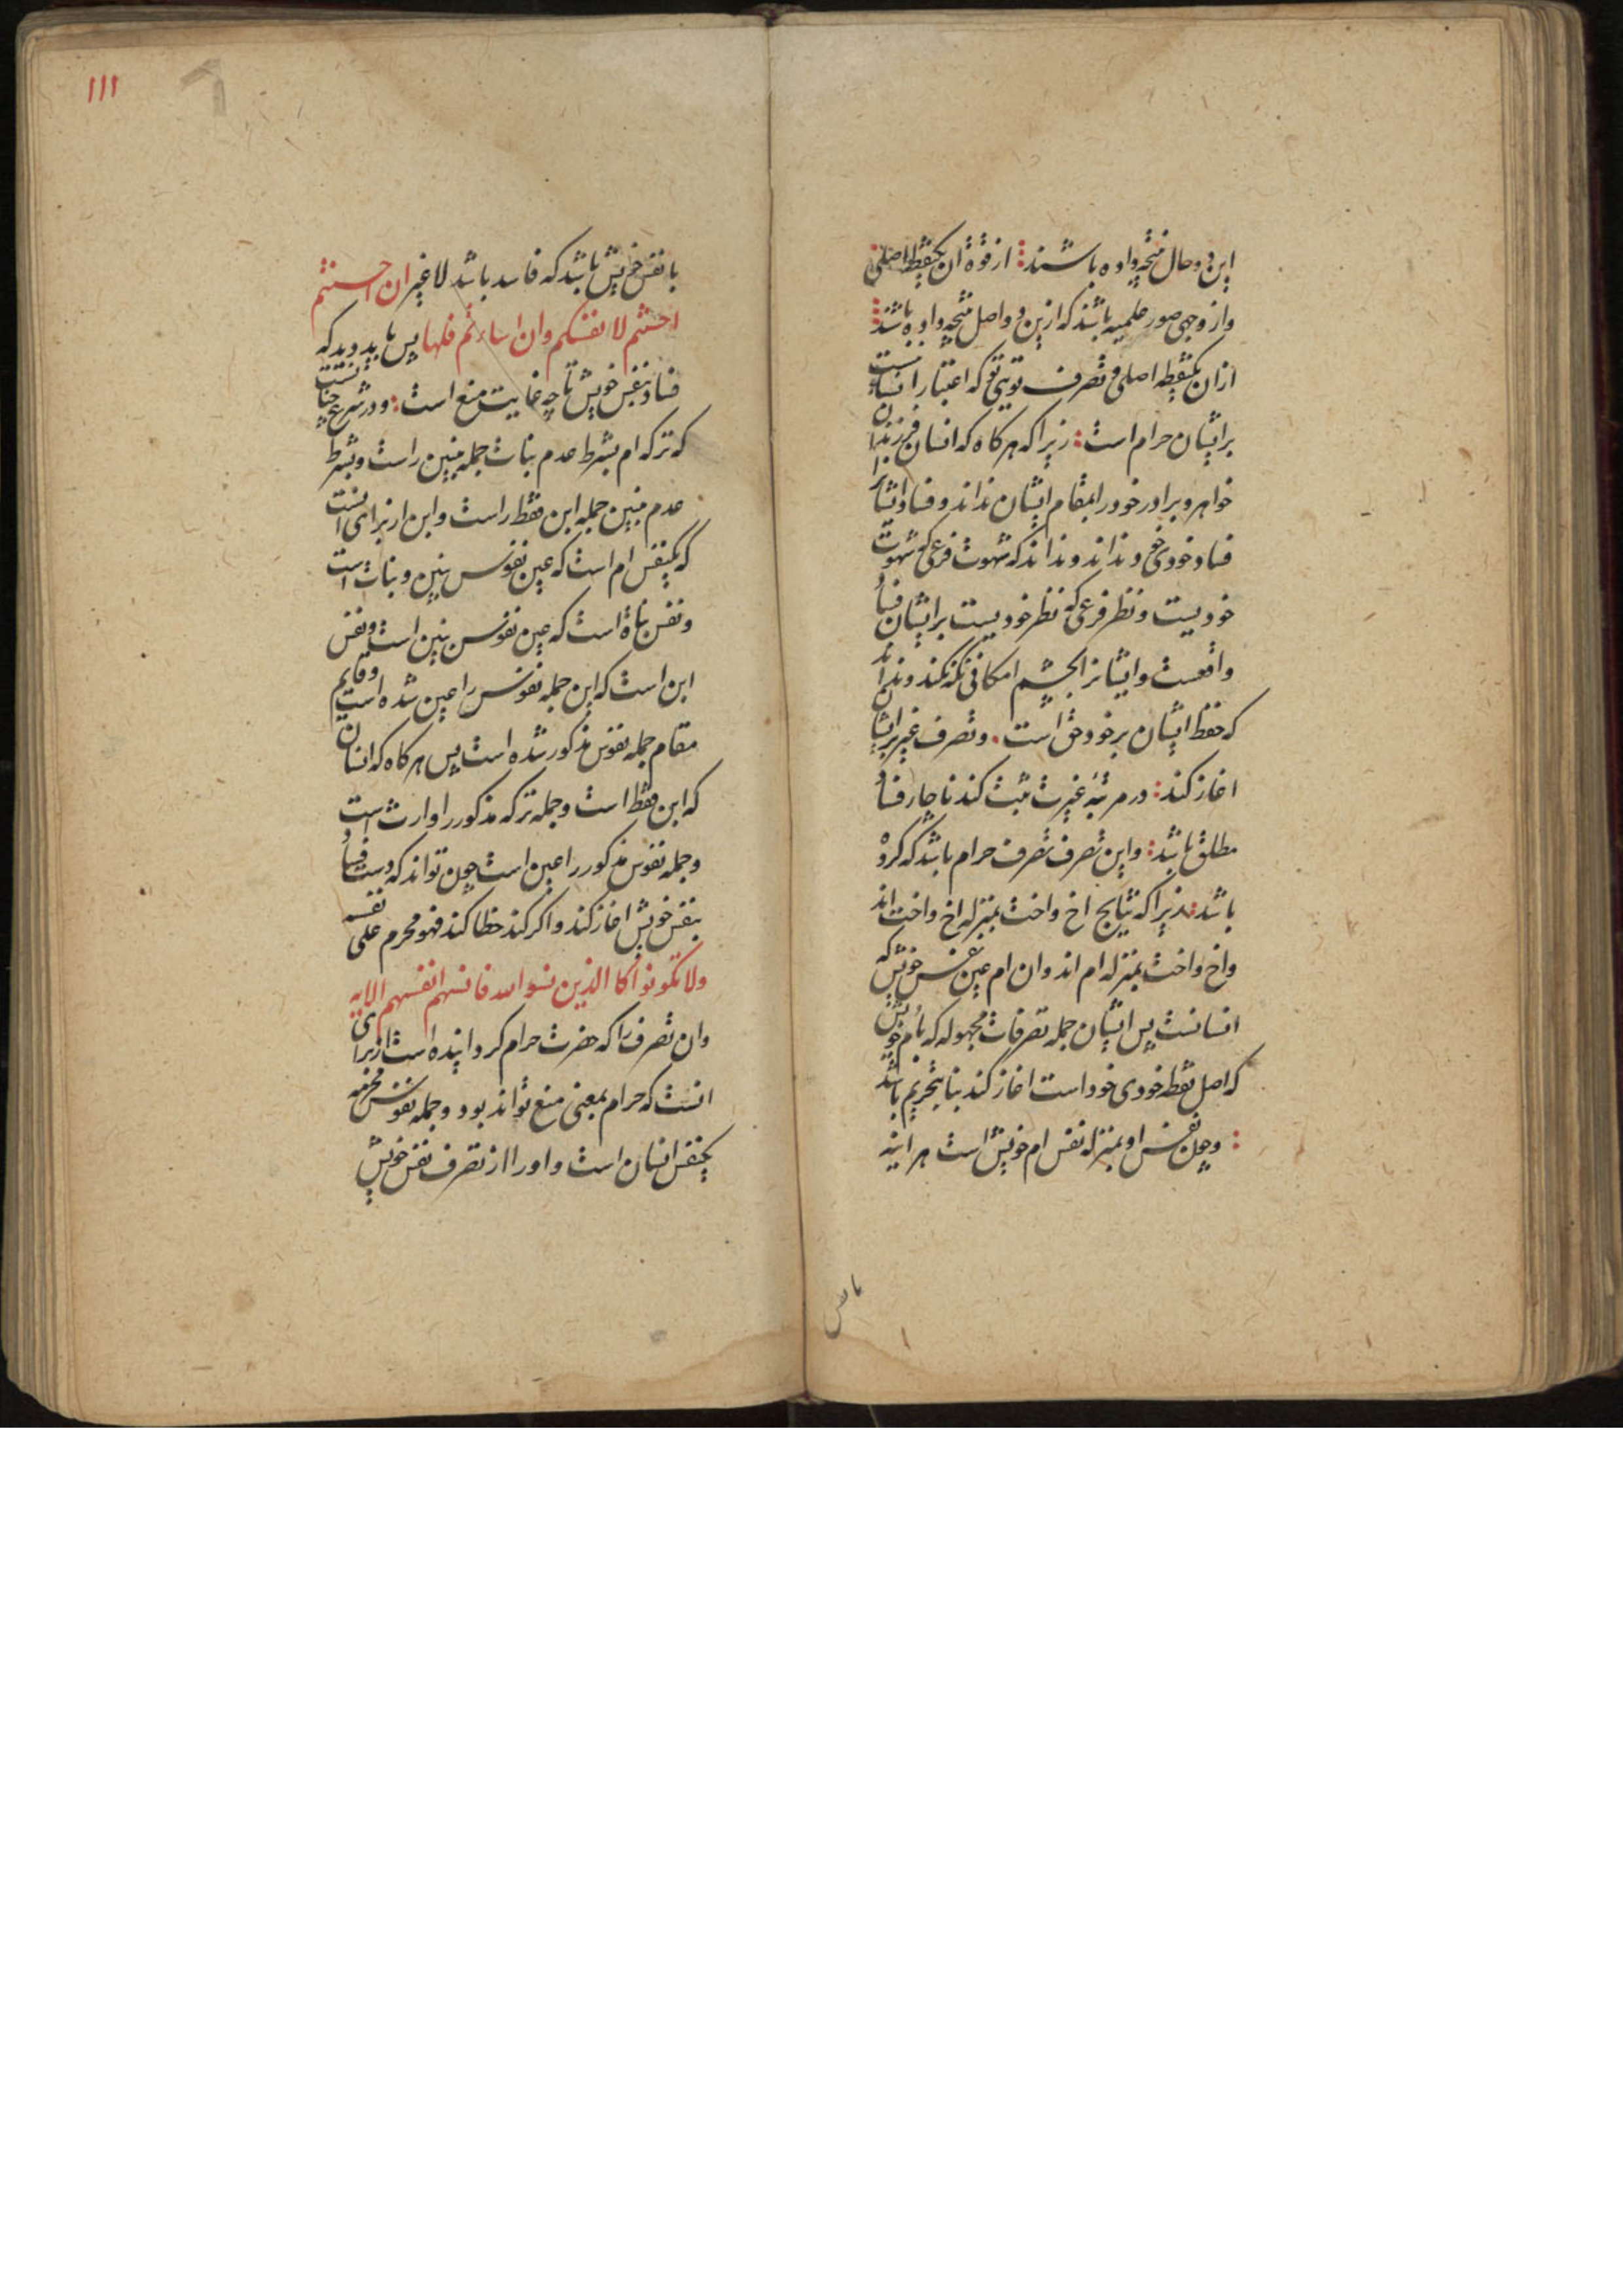 این دو حال نتیجه داده باشند از قوة آن یکنقطه اصلی
واز وجهی صور علمیه باشند که ازین دو اصل نتیجه داده باشند
ازان یکنقطه اصلی و تصرف که اعتبار انسانیست
برایشان حرام است زیرا که هر کاه که انسان فرزندان
خواهر و برادر خود را بمقام ایشان نداند و فساد ایشانرا
فساد خودی خود نداند و نداند که شهوت فرعی که شهوت
خودیست و نظر فرعی که نظر خودیست برایشان فساد
واقعست وایشانرا بچشم امکانی نکه نکند و نداند
که حفظ ایشان بر خود حق است و تصرف غیر برایشان
اغاز کند در مرتبۀ غیرت مثبت کند ناچار فساد
مطلق باشد واین تصرف تصرف حرام باشد که کرده
باشد زیرا که نتایج اخ واخت بمنزله اخ واخت اند
واخ واخت بمنزله ام اند وان ام عین نفس خویش که
انسانست پس ایشان جمله تصرفات مجهوله که با ام خویش
که اصل نقطه خودی خود است اغاز کند بنا بتحریم باشد
وچون نفس او بمنزله نفس ام خویش است هر اینه
با نفس
ااا
با نفس خویش باشد که فاسد باشد لا غیر ان احسنتم
احسنتم لانفسکم وان اساءتم فلها پس باید دید که
فساد بنفس خویش تا چه غایت منع است ودر شرع چنانست
که ترکه ام بشرط عدم بنات جمله بنین راست وبشرط
عدم بنین جمله ابن فقط راست واین از برای انست
که یکنفس ام است که عین نفوس بنین وبنات است
ونفس بناة است که عین نفوس بنین است ونفس
ابن است که این جمله نفوس را عین شده است وقایم
مقام جمله نفوس مذکور شده است پس هر کاه که انسان
که ابن فقط است وجمله ترکه مذکور را وارث است
وجمله نفوس مذکور را عین است چون تواند که دست فساد
بنفس خویش اغاز کند واکر کند خطا کند فهو محرم علی نفسه
ولا تکونوا کالذین نسوا الله فانسیهم انفسهم الایه
وان تصرف را که حضرت حرام کردانیده است از برای
انست که حرام بمعنی منع تواند بود وجمله نفوس محرمه
یکنفس انسان است واورا از تصرف نفس خویش